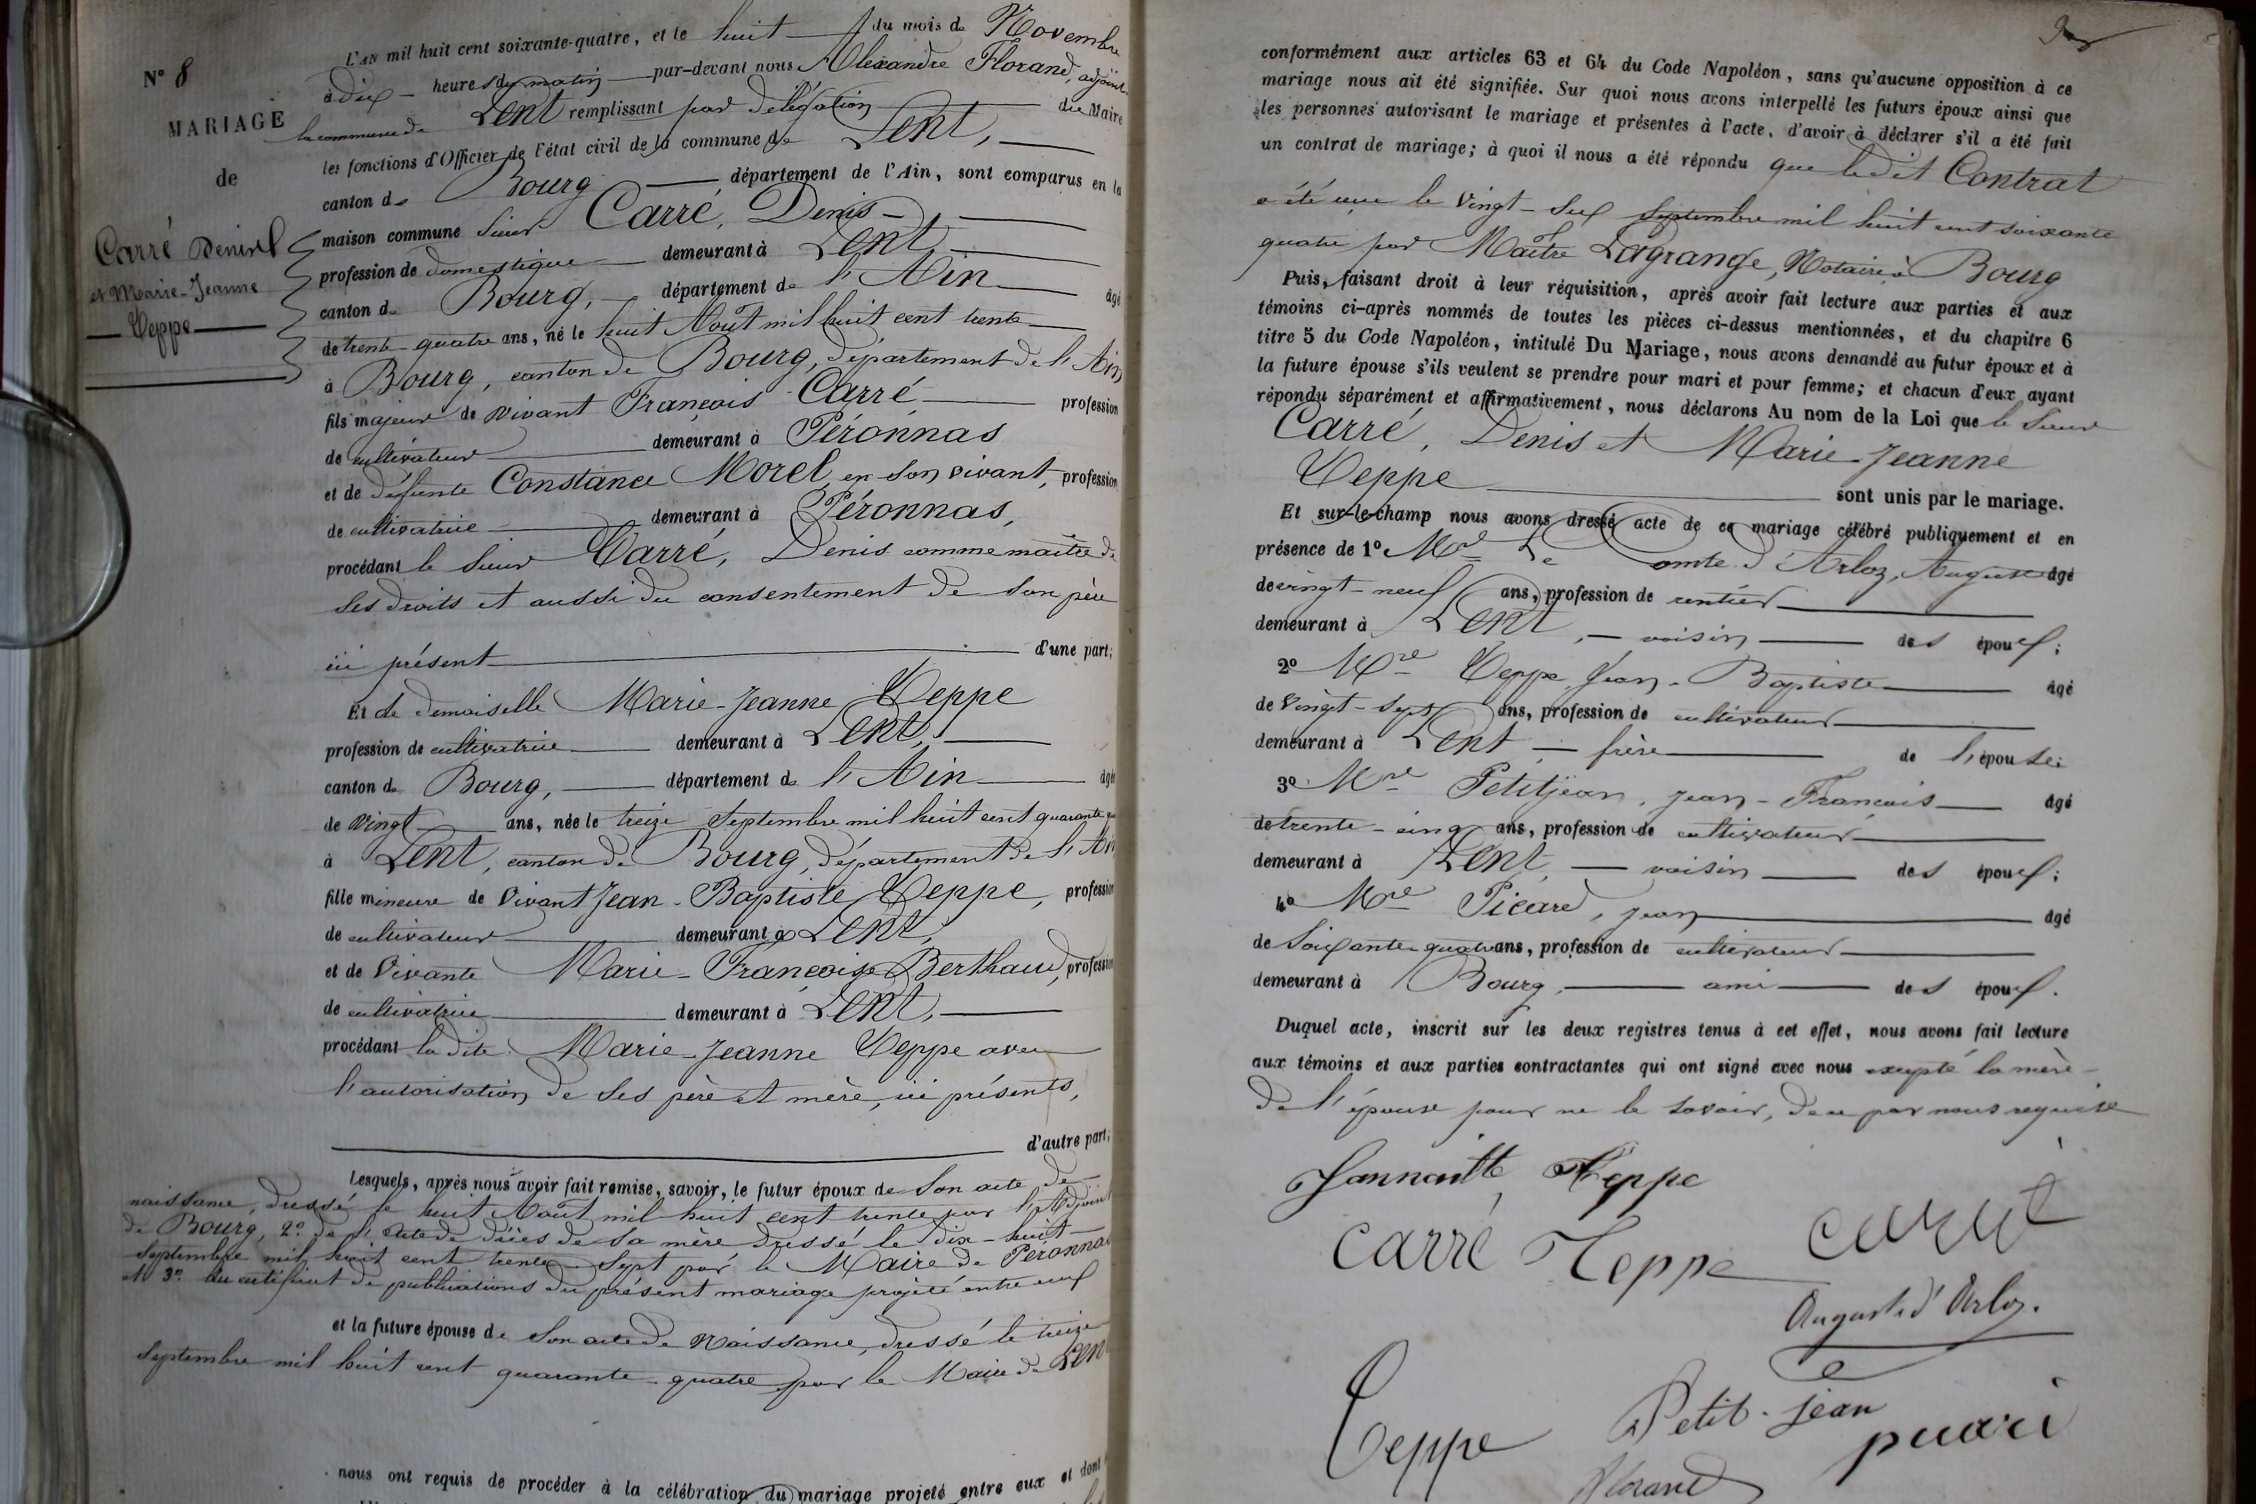 N° 8
MARIAGE
de
Carré Denis
et Marie-Jeanne
Teppe
L'AN mil huit cent soixante-quatre, et le huit du mois de Novembre
à dix heures du matin par-devant nous Alexandre Florand, adjoint
la commune de Lent remplissant par délégation du Maire
les fonctions d'Officier de l'état civil de la commune de Lent,
canton de Bourg département de l'Ain, sont comparus en la
maison commune sieur Carré, Denis
profession de domestique demeurant à Lent,
canton de Bourg, département de l'Ain âgé
de trente-quatre ans, né le huit Août mil huit cent trente
à Bourg, canton de Bourg, département de l'Ain
fils majeur de vivant François Carré profession
de cultivateur demeurant à Péronnas
et de défunte Constance Morel, en son vivant, profession
de cultivatrice demeurant à Péronnas,
procédant le sieur Carré, Denis comme maître de
ses droits et aussi du consentement de son père
ici présent d'une part;
Et de demoiselle Marie-Jeanne Teppe
profession de cultivatrice demeurant à Lent,
canton de Bourg, département de l'Ain âgée
de vingt ans, née le treize Septembre mil huit cent quarante
à Lent, canton de Bourg, département de l'Ain
fille mineure de vivant Jean-Baptiste Teppe, profession
de cultivateur demeurant à Lent,
et de vivante Marie-Françoise Berthaud, profession
de cultivatrice demeurant à Lent,
procédant la dite Marie-Jeanne Teppe avec
l'autorisation de ses père et mère, ici présents,
d'autre part;
Lesquels, après nous avoir fait remise, savoir, le futur époux de son acte de
naissance, dressé le huit Août mil huit cent trente par l'Adjoint
de Bourg, 2° de l'acte de décès de sa mère dressé le dix-huit
Septembre mil huit cent trente-sept par le Maire de Péronnas
et 3° du certificat de publications du présent mariage projeté entre eux
et la future épouse de son acte de Naissance, dressé le treize
Septembre mil huit cent quarante-quatre par le Maire de Lent
nous ont requis de procéder à la célébration du mariage projeté entre eux et dont
conformément aux articles 63 et 64 du Code Napoléon, sans qu'aucune opposition à ce
mariage nous ait été signifiée. Sur quoi nous avons interpellé les futurs époux ainsi que
les personnes autorisant le mariage et présentes à l'acte, d'avoir à déclarer s'il a été fait
un contrat de mariage; à quoi il nous a été répondu que le dit Contrat
a été reçu le vingt-six Septembre mil huit cent soixante
quatre par Maître Lagrange, Notaire à Bourg
Puis, faisant droit à leur réquisition, après avoir fait lecture aux parties et aux
témoins ci-après nommés de toutes les pièces ci-dessus mentionnées, et du chapitre 6
titre 5 du Code Napoléon, intitulé Du Mariage, nous avons demandé au futur époux et à
la future épouse s'ils veulent se prendre pour mari et pour femme; et chacun d'eux ayant
répondu séparément et affirmativement, nous déclarons Au nom de la Loi que le Sieur
Carré, Denis et Marie-Jeanne
Teppe sont unis par le mariage.
Et sur-le-champ nous avons dressé acte de ce mariage célébré publiquement et en
présence de 1° Mr Le Comte d'Arloz, Auguste âgé
de vingt-neuf ans, profession de rentier
demeurant à Lent, voisin des époux;
2° Mre Teppe Jean-Baptiste âgé
de vingt-sept ans, profession de cultivateur
demeurant à Lent, frère de l'épouse;
3° Mre Petitjean, Jean-François âgé
de trente-cinq ans, profession de cultivateur
demeurant à Lent, voisin des époux;
4° Mre Picard, Jean âgé
de soixante-quatre ans, profession de cultivateur
demeurant à Bourg, ami des époux.
Duquel acte, inscrit sur les deux registres tenus à cet effet, nous avons fait lecture
aux témoins et aux parties contractantes qui ont signé avec nous excepté la mère
de l'épouse pour ne le savoir, de ce par nous requise
Jannaitte Teppe
Carré Teppe carré
Auguste d'Arloz.
Teppe Petit-jean picari
Florand